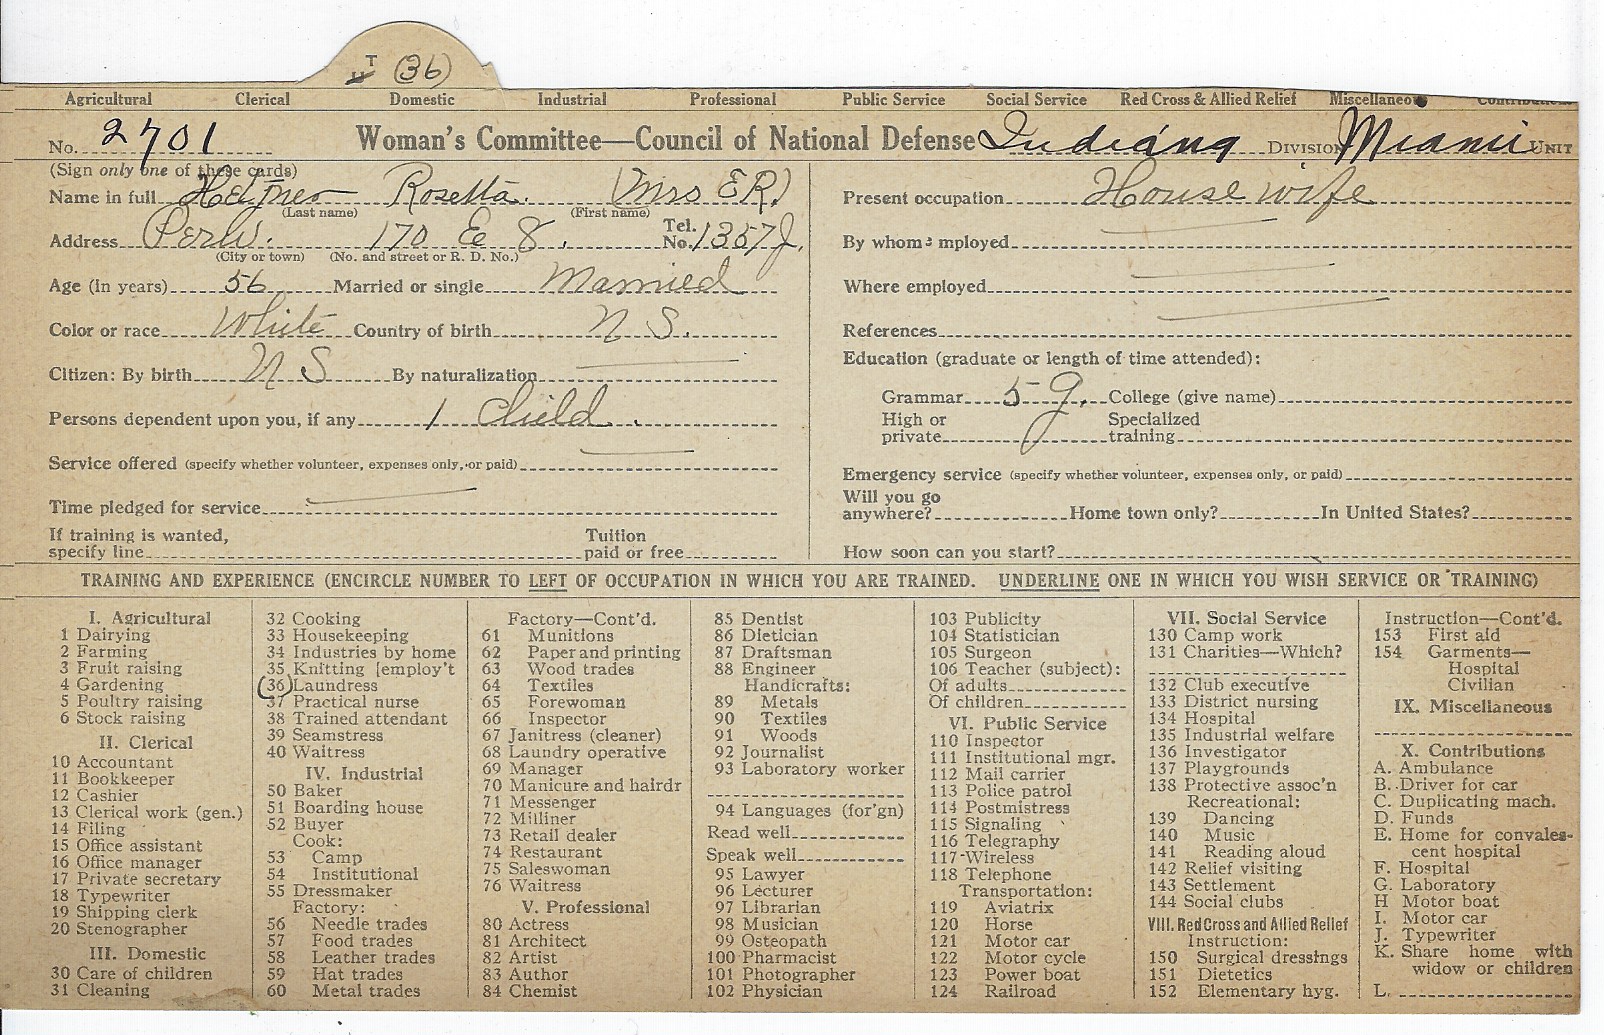 T (36)
Agricultural Clerical Domestic Industrial Professional Public Service Social Service Red Cross & Allied Relief Miscellaneous
No. 2701 Woman's Committee—Council of National Defense Indiana DIVISION Miami UNIT
(Sign only one of these cards)
Name in full Rosetta. (Mrs ER)
(Last name) (First name)
Address Peru. 170 E 8. Tel. No. 1357J.
(City or town) (No. and street or R. D. No.)
Age (in years) 56 Married or single Married
Color or race White Country of birth U S.
Citizen: By birth U S By naturalization
Persons dependent upon you, if any 1 Child.
Service offered (specify whether volunteer, expenses only, or paid)
Time pledged for service
If training is wanted, specify line Tuition paid or free
Present occupation House wife
By whom employed
Where employed
References
Education (graduate or length of time attended):
Grammar 5 g. College (give name)
High or private Specialized training
Emergency service (specify whether volunteer, expenses only, or paid)
Will you go anywhere? Home town only? In United States?
How soon can you start?
TRAINING AND EXPERIENCE (ENCIRCLE NUMBER TO LEFT OF OCCUPATION IN WHICH YOU ARE TRAINED. UNDERLINE ONE IN WHICH YOU WISH SERVICE OR TRAINING)
I. Agricultural
1 Dairying
2 Farming
3 Fruit raising
4 Gardening
5 Poultry raising
6 Stock raising
II. Clerical
10 Accountant
11 Bookkeeper
12 Cashier
13 Clerical work (gen.)
14 Filing
15 Office assistant
16 Office manager
17 Private secretary
18 Typewriter
19 Shipping clerk
20 Stenographer
III. Domestic
30 Care of children
31 Cleaning
32 Cooking
33 Housekeeping
34 Industries by home
35 Knitting [employ't
(36) Laundress
37 Practical nurse
38 Trained attendant
39 Seamstress
40 Waitress
IV. Industrial
50 Baker
51 Boarding house
52 Buyer
Cook:
53 Camp
54 Institutional
55 Dressmaker
Factory:
56 Needle trades
57 Food trades
58 Leather trades
59 Hat trades
60 Metal trades
Factory—Cont'd.
61 Munitions
62 Paper and printing
63 Wood trades
64 Textiles
65 Forewoman
66 Inspector
67 Janitress (cleaner)
68 Laundry operative
69 Manager
70 Manicure and hairdr
71 Messenger
72 Milliner
73 Retail dealer
74 Restaurant
75 Saleswoman
76 Waitress
V. Professional
80 Actress
81 Architect
82 Artist
83 Author
84 Chemist
85 Dentist
86 Dietician
87 Draftsman
88 Engineer
Handicrafts:
89 Metals
90 Textiles
91 Woods
92 Journalist
93 Laboratory worker
94 Languages (for'gn)
Read well
Speak well
95 Lawyer
96 Lecturer
97 Librarian
98 Musician
99 Osteopath
100 Pharmacist
101 Photographer
102 Physician
103 Publicity
104 Statistician
105 Surgeon
106 Teacher (subject):
Of adults
Of children
VI. Public Service
110 Inspector
111 Institutional mgr.
112 Mail carrier
113 Police patrol
114 Postmistress
115 Signaling
116 Telegraphy
117 Wireless
118 Telephone
Transportation:
119 Aviatrix
120 Horse
121 Motor car
122 Motor cycle
123 Power boat
124 Railroad
VII. Social Service
130 Camp work
131 Charities—Which?
132 Club executive
133 District nursing
134 Hospital
135 Industrial welfare
136 Investigator
137 Playgrounds
138 Protective assoc'n
Recreational:
139 Dancing
140 Music
141 Reading aloud
142 Relief visiting
143 Settlement
144 Social clubs
VIII. Red Cross and Allied Relief
Instruction:
150 Surgical dressings
151 Dietetics
152 Elementary hyg.
Instruction—Cont'd.
153 First aid
154 Garments—
Hospital
Civilian
IX. Miscellaneous
X. Contributions
A. Ambulance
B. Driver for car
C. Duplicating mach.
D. Funds
E. Home for convales-
cent hospital
F. Hospital
G. Laboratory
H Motor boat
I. Motor car
J. Typewriter
K. Share home with
widow or children
L.